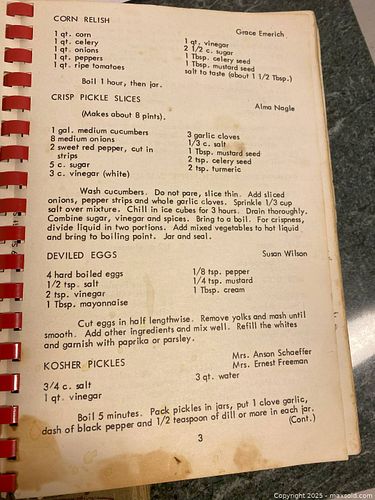 CORN RELISH
Grace Emerich
1 qt. corn
1 qt. celery
1 qt. onions
1 qt. peppers
1 qt. ripe tomatoes
1 qt. vinegar
2 1/2 c. sugar
1 Tbsp. celery seed
1 Tbsp. mustard seed
salt to taste (about 1 1/2 Tbsp.)
Boil 1 hour, then jar.
CRISP PICKLE SLICES
Alma Nagle
(Makes about 8 pints).
1 gal. medium cucumbers
8 medium onions
2 sweet red pepper, cut in
strips
5 c. sugar
3 c. vinegar (white)
3 garlic cloves
1/3 c. salt
1 Tbsp. mustard seed
2 tsp. celery seed
2 tsp. turmeric
Wash cucumbers. Do not pare, slice thin. Add sliced
onions, pepper strips and whole garlic cloves. Sprinkle 1/3 cup
salt over mixture. Chill in ice cubes for 3 hours. Drain thoroughly.
Combine sugar, vinegar and spices. Bring to a boil. For crispness,
divide liquid in two portions. Add mixed vegetables to hot liquid
and bring to boiling point. Jar and seal.
DEVILED EGGS
Susan Wilson
4 hard boiled eggs
1/2 tsp. salt
2 tsp. vinegar
1 Tbsp. mayonnaise
1/8 tsp. pepper
1/4 tsp. mustard
1 Tbsp. cream
Cut eggs in half lengthwise. Remove yolks and mash until
smooth. Add other ingredients and mix well. Refill the whites
and garnish with paprika or parsley.
KOSHER PICKLES
Mrs. Anson Schaeffer
Mrs. Ernest Freeman
3/4 c. salt
1 qt. vinegar
3 qt. water
Boil 5 minutes. Pack pickles in jars, put 1 clove garlic,
dash of black pepper and 1/2 teaspoon of dill or more in each jar.
(Cont.)
3
Copyright 2025 - maxsold.com